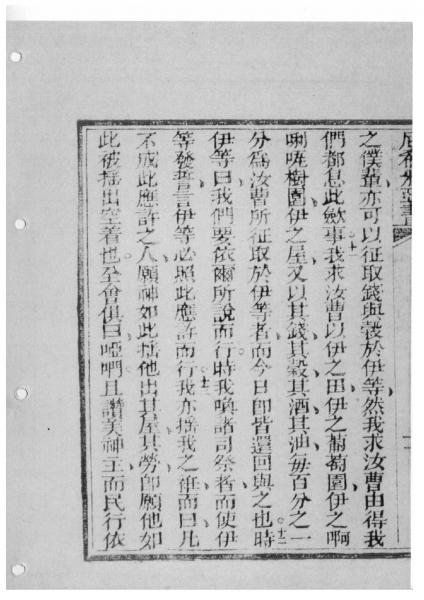 之僕輩亦可以征取錢與穀於伊等然我求汝曹由得我
們都息此斂事○十一我求汝曹以伊之田伊之葡萄園伊之啊
唎咓樹園伊之屋又以其錢其穀其酒其油每百分之一
分為汝曹所征取於伊等者而今日即皆還回與之也○十二時
伊等曰我們要依爾所說而行時我喚諸司祭者而使伊
等發誓言伊等必照此應許而行○十三我亦搖我之而曰凡
不成此應許之人願神如此搖他出其屋其勞即願他如
此被搖出空着也至會俱曰啞們且讚美神主而民行依